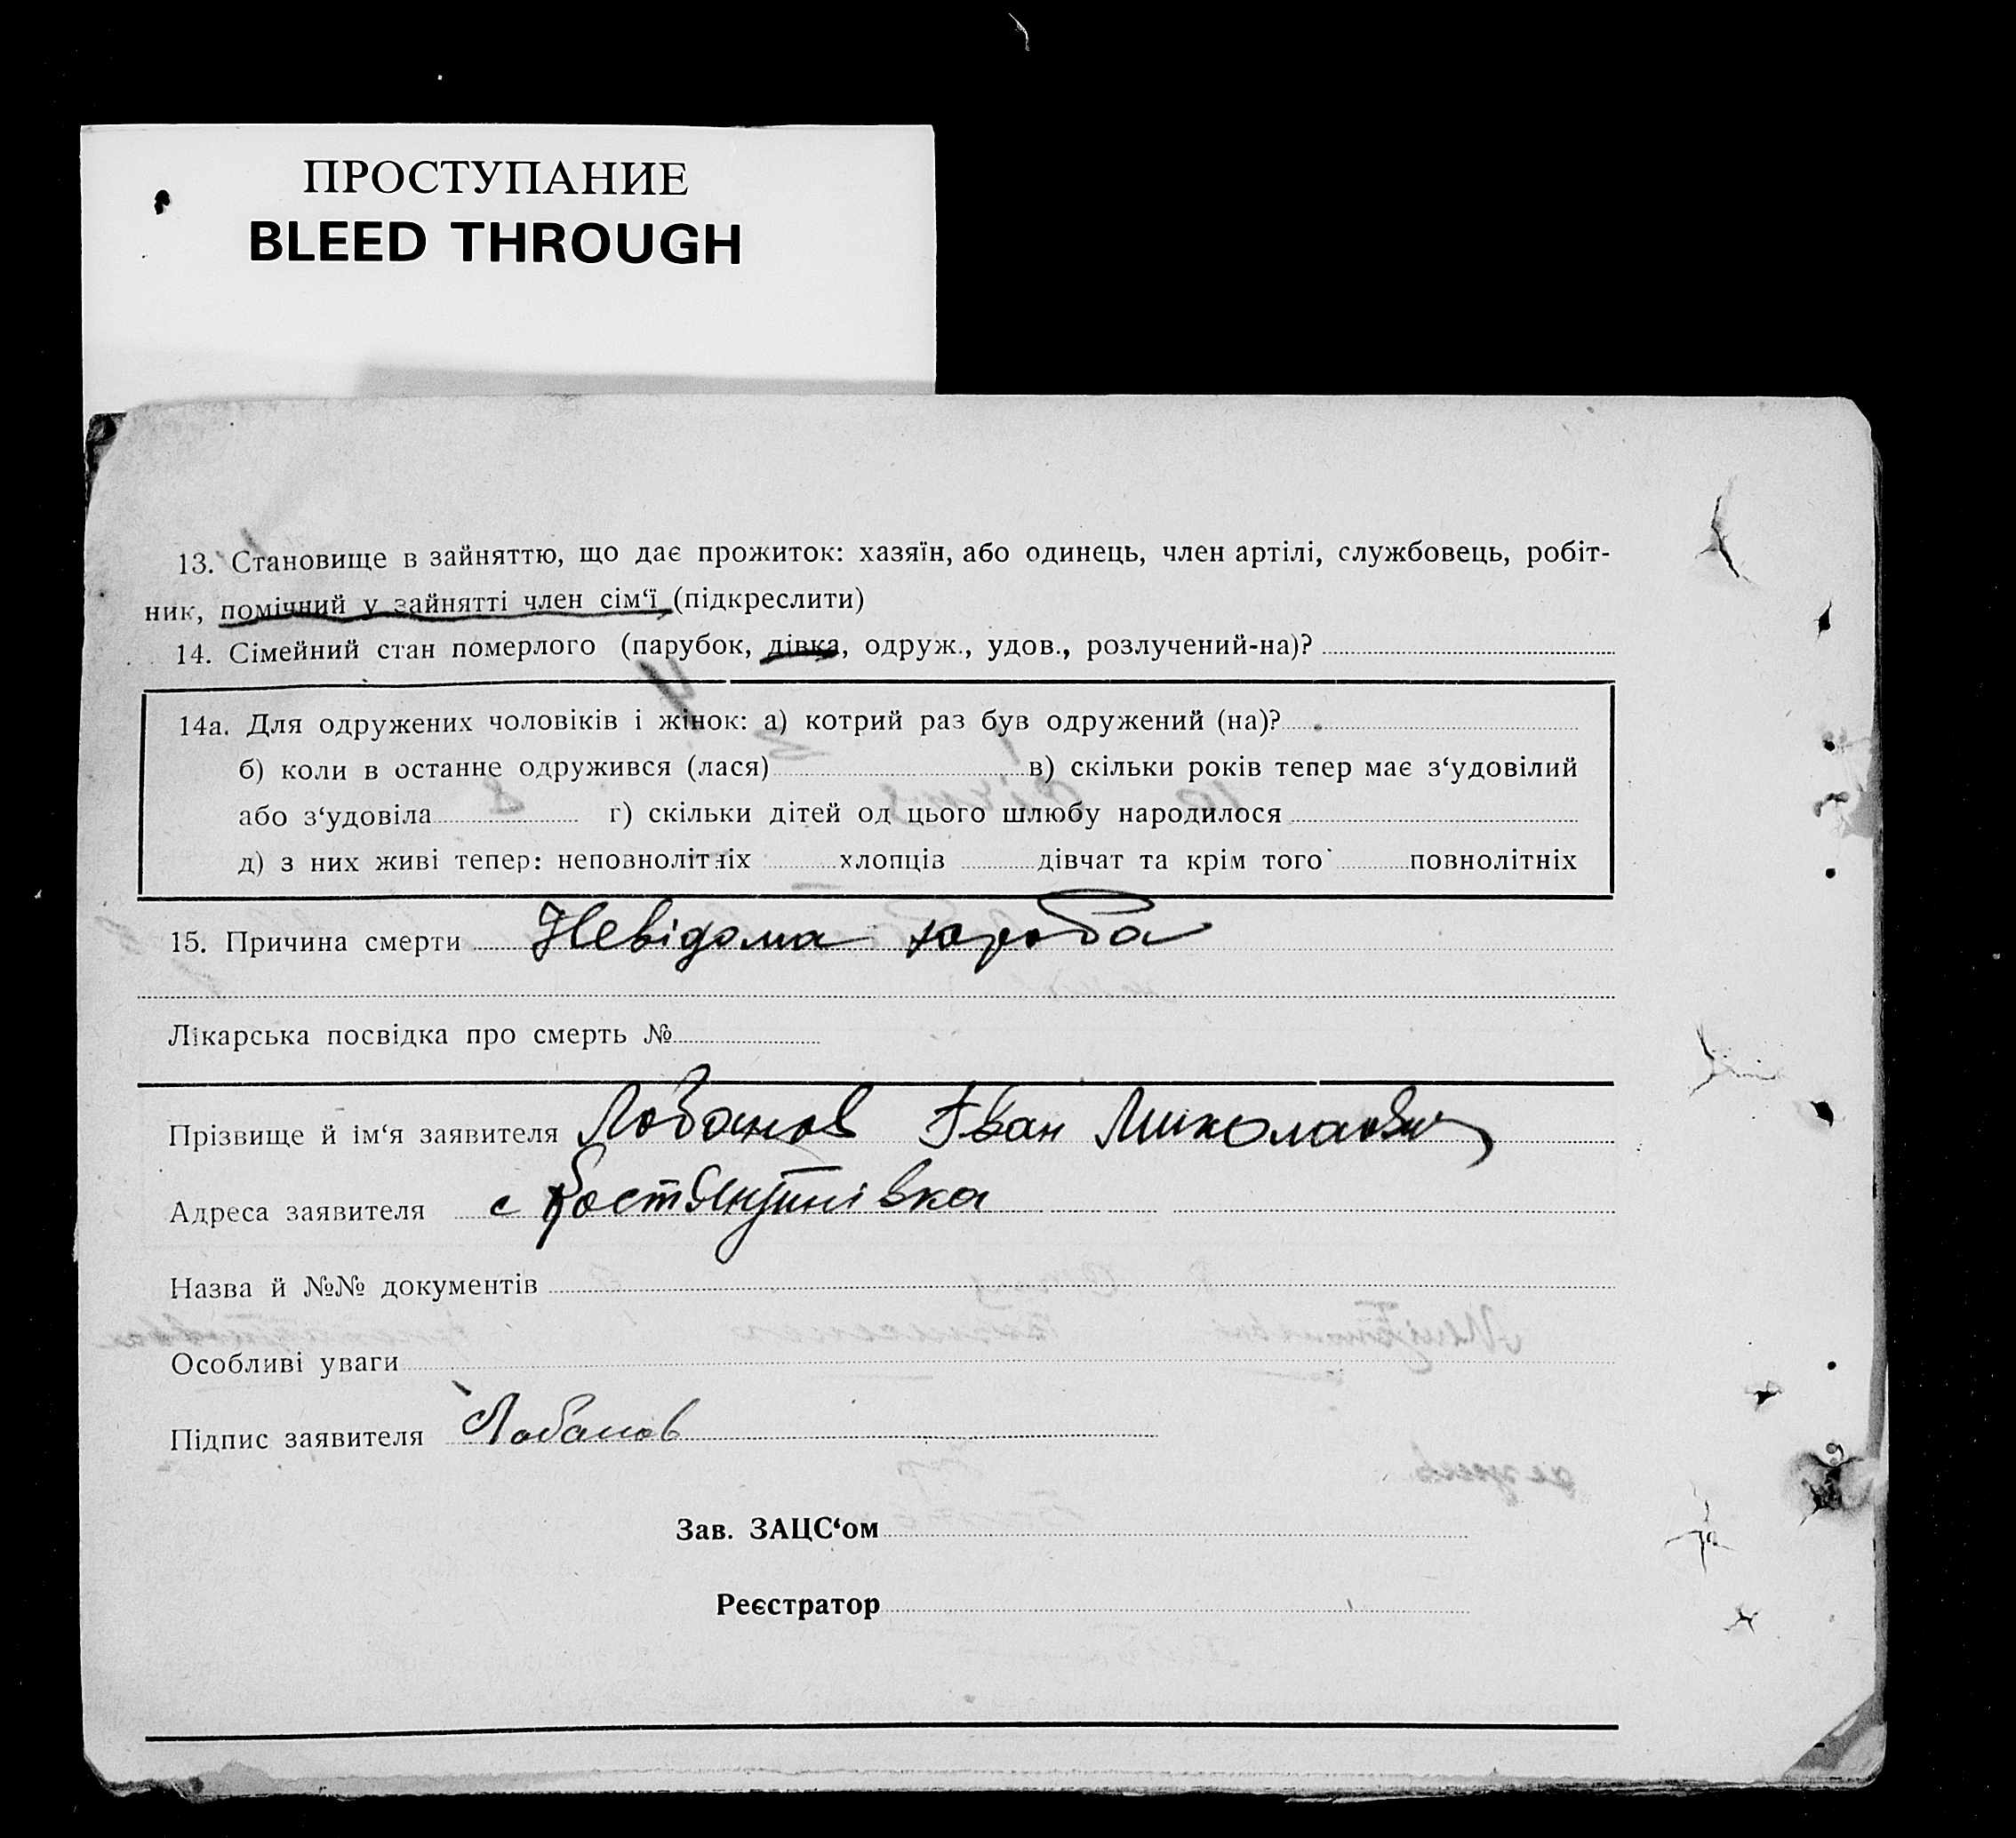 ПРОСТУПАНИЕ
BLEED THROUGH
13. Становище в зайняттю, що дає прожиток: хазяїн, або одинець, член артілі, службовець, робіт-
ник, помічний у зайнятті член сім‘ї (підкреслити)
14. Сімейний стан померлого (парубок, дівка, одруж., удов., розлучений-на)?
14а. Для одружених чоловіків і жінок: а) котрий раз був одружений (на)?
б) коли в останне одружився (лася) в) скільки років тепер має з‘удовілий
або з‘удовіла г) скільки дітей од цього шлюбу народилося
д) з них живі тепер: неповнолітніх хлопців дівчат та крім того повнолітніх
15. Причина смерти Невідома хороба
Лікарська посвідка про смерть №
Прізвище й ім‘я заявителя Лобанов Іван Миколаєвич
Адреса заявителя с Костянтинівка
Назва й №№ документів
Особливі уваги
Підпис заявителя Лобанов
Зав. ЗАЦС‘ом
Реєстратор